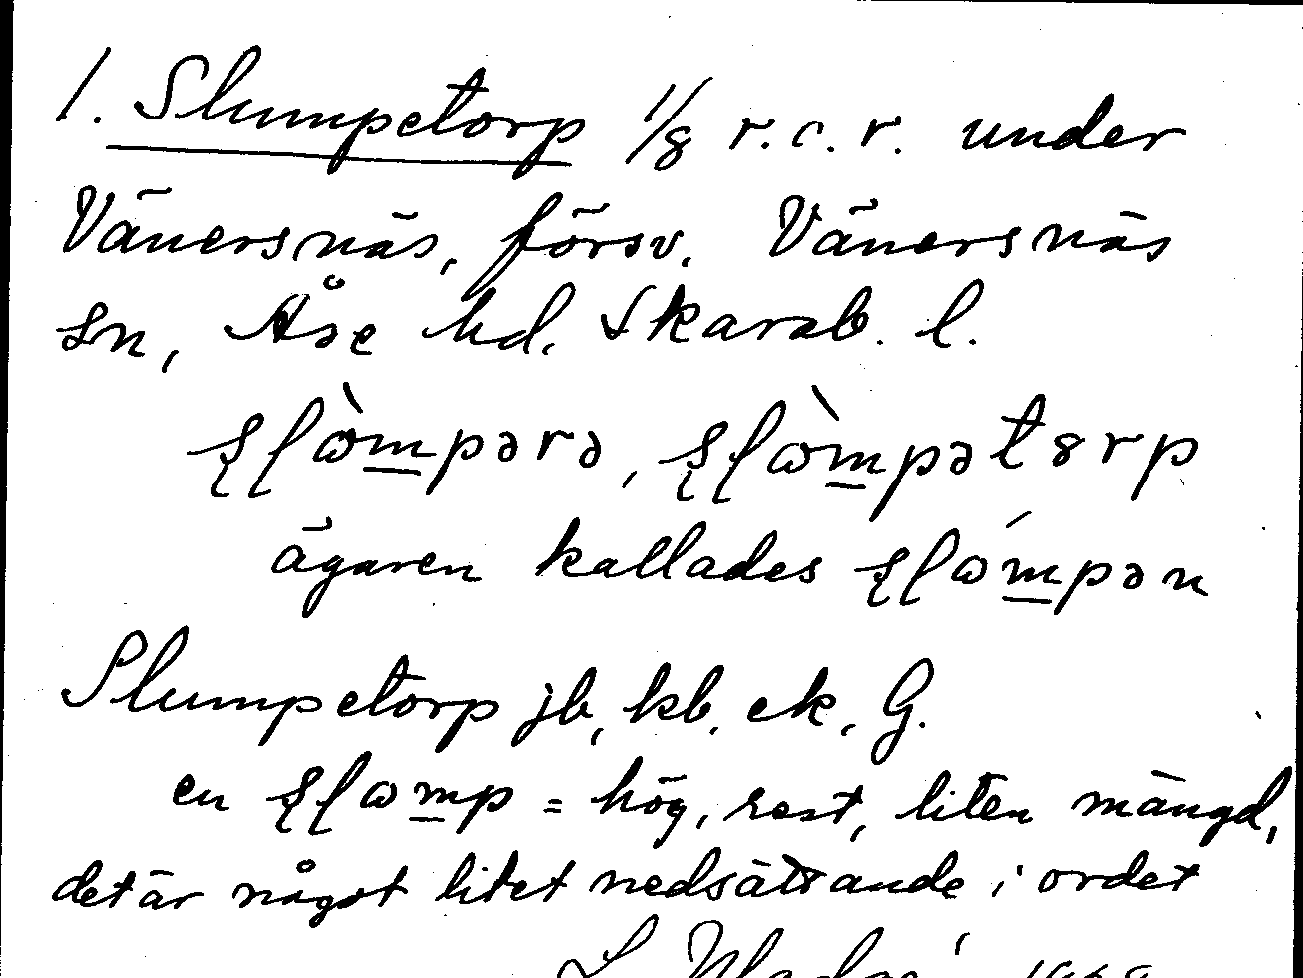 1. Slumpetorp 1/8 r.c.r. under
Vänersnäs, försv. Vänersnäs
sn, Åse hd. Skarab. l.
ägaren kallades
Slumpetorp jb, kb, ek, G.
en = hög, rest, liten mängd,
det är något litet nedsättande i ordet